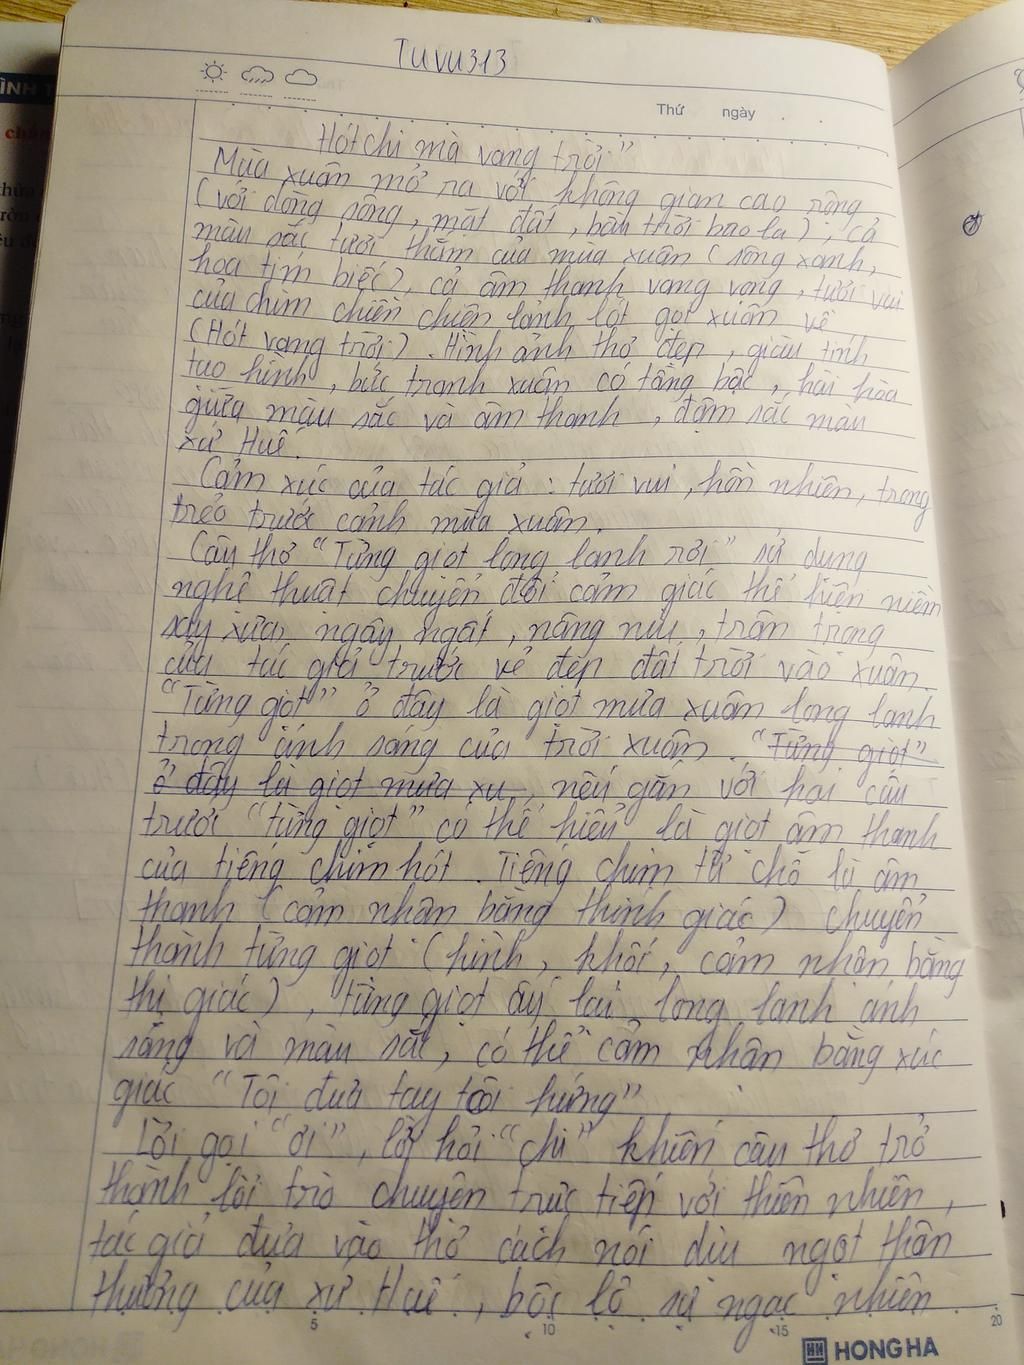 Tuvu313
Thứ ngày
Hót chi mà vang trời"
Mùa xuân mở ra với không gian cao rộng
(với dòng sông, mặt đất, bầu trời bao la), cả
màu sắc tươi thắm của mùa xuân (sông xanh,
hoa tím biếc), cả âm thanh vang vọng, tươi vui
của chim chiền chiện lảnh lót gọi xuân về
(Hót vang trời). Hình ảnh thơ đẹp, giàu tính
tạo hình, bức tranh xuân có tầng bậc, hài hòa
giữa màu sắc và âm thanh, đậm sắc màu
xứ Huế.
Cảm xúc của tác giả: tươi vui, hồn nhiên, trong
trẻo trước cảnh mùa xuân.
Câu thơ "Từng giọt long lanh rơi" sử dụng
nghệ thuật chuyển đổi cảm giác thể hiện niềm
say xưa, ngây ngất, nâng niu, trân trọng
của tác giả trước vẻ đẹp đất trời vào xuân.
"Từng giọt" ở đây là giọt mưa xuân long lanh
trong ánh sáng của trời xuân. "Từng giọt"
ở đây là giọt mưa xu, nếu gắn với hai câu
trươc "từng giọt" có thể hiểu là giọt âm thanh
của tiếng chim hót. Tiếng chim từ chỗ là âm
thanh (cảm nhận bằng thính giác) chuyển
thành từng giọt (hình, khối, cảm nhận bằng
thị giác), từng giọt ấy lại long lanh ánh
sáng và màu sắc, có thể cảm nhận bằng xúc
giác "Tôi đưa tay tôi hứng"
Lời gọi "ơi", lời hỏi "chi" khiến câu thơ trở
thành lời trò chuyện trực tiếp với thiên nhiên,
tác giả đưa vào thơ cách nói dịu ngọt thân
thương của xứ Huế, bộc lộ sự ngạc nhiên
5 10 15 20
HONG HA